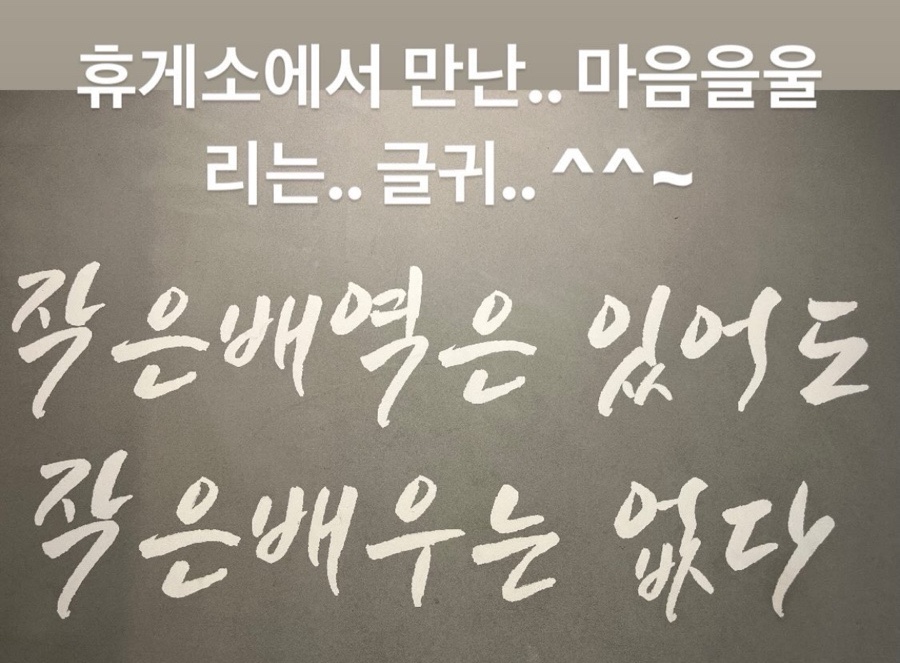 휴게소에서 만난.. 마음을울
리는.. 글귀.. ^^~
작은배역은 있어도
작은배우는 없다